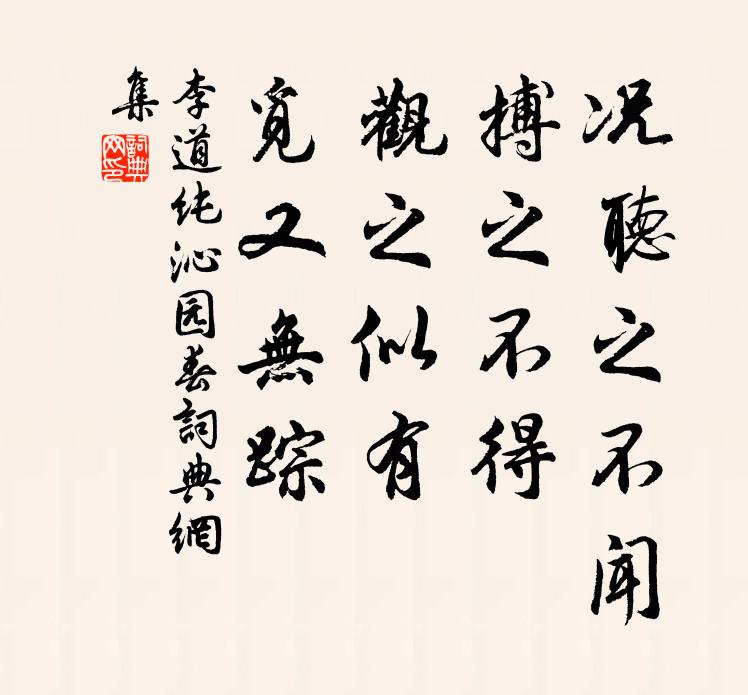 况聽之不聞
搏之不得
觀之似有
覓又無踪
李道纯沁园春詞典網
集
詞典
网印